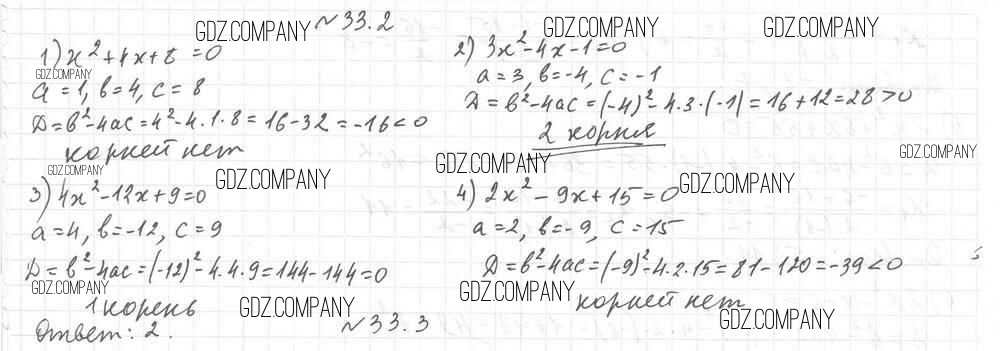 № 33.2
GDZ.COMPANY GDZ.COMPANY GDZ.COMPANY
1) x² + 4x + 8 = 0
GDZ.COMPANY
a = 1, b = 4, c = 8
D = b² - 4ac = 4² - 4·1·8 = 16 - 32 = -16 < 0
корней нет
2) 3x² - 4x - 1 = 0
a = 3, b = -4, c = -1
D = b² - 4ac = (-4)² - 4·3·(-1) = 16 + 12 = 28 > 0
2 корня
GDZ.COMPANY
GDZ.COMPANY
GDZ.COMPANY GDZ.COMPANY GDZ.COMPANY
3) 4x² - 12x + 9 = 0
a = 4, b = -12, c = 9
D = b² - 4ac = (-12)² - 4·4·9 = 144 - 144 = 0
GDZ.COMPANY
1 корень
4) 2x² - 9x + 15 = 0
a = 2, b = -9, c = 15
D = b² - 4ac = (-9)² - 4·2·15 = 81 - 120 = -39 < 0
GDZ.COMPANY
корней нет
GDZ.COMPANY
GDZ.COMPANY
Ответ: 2.
№ 33.3